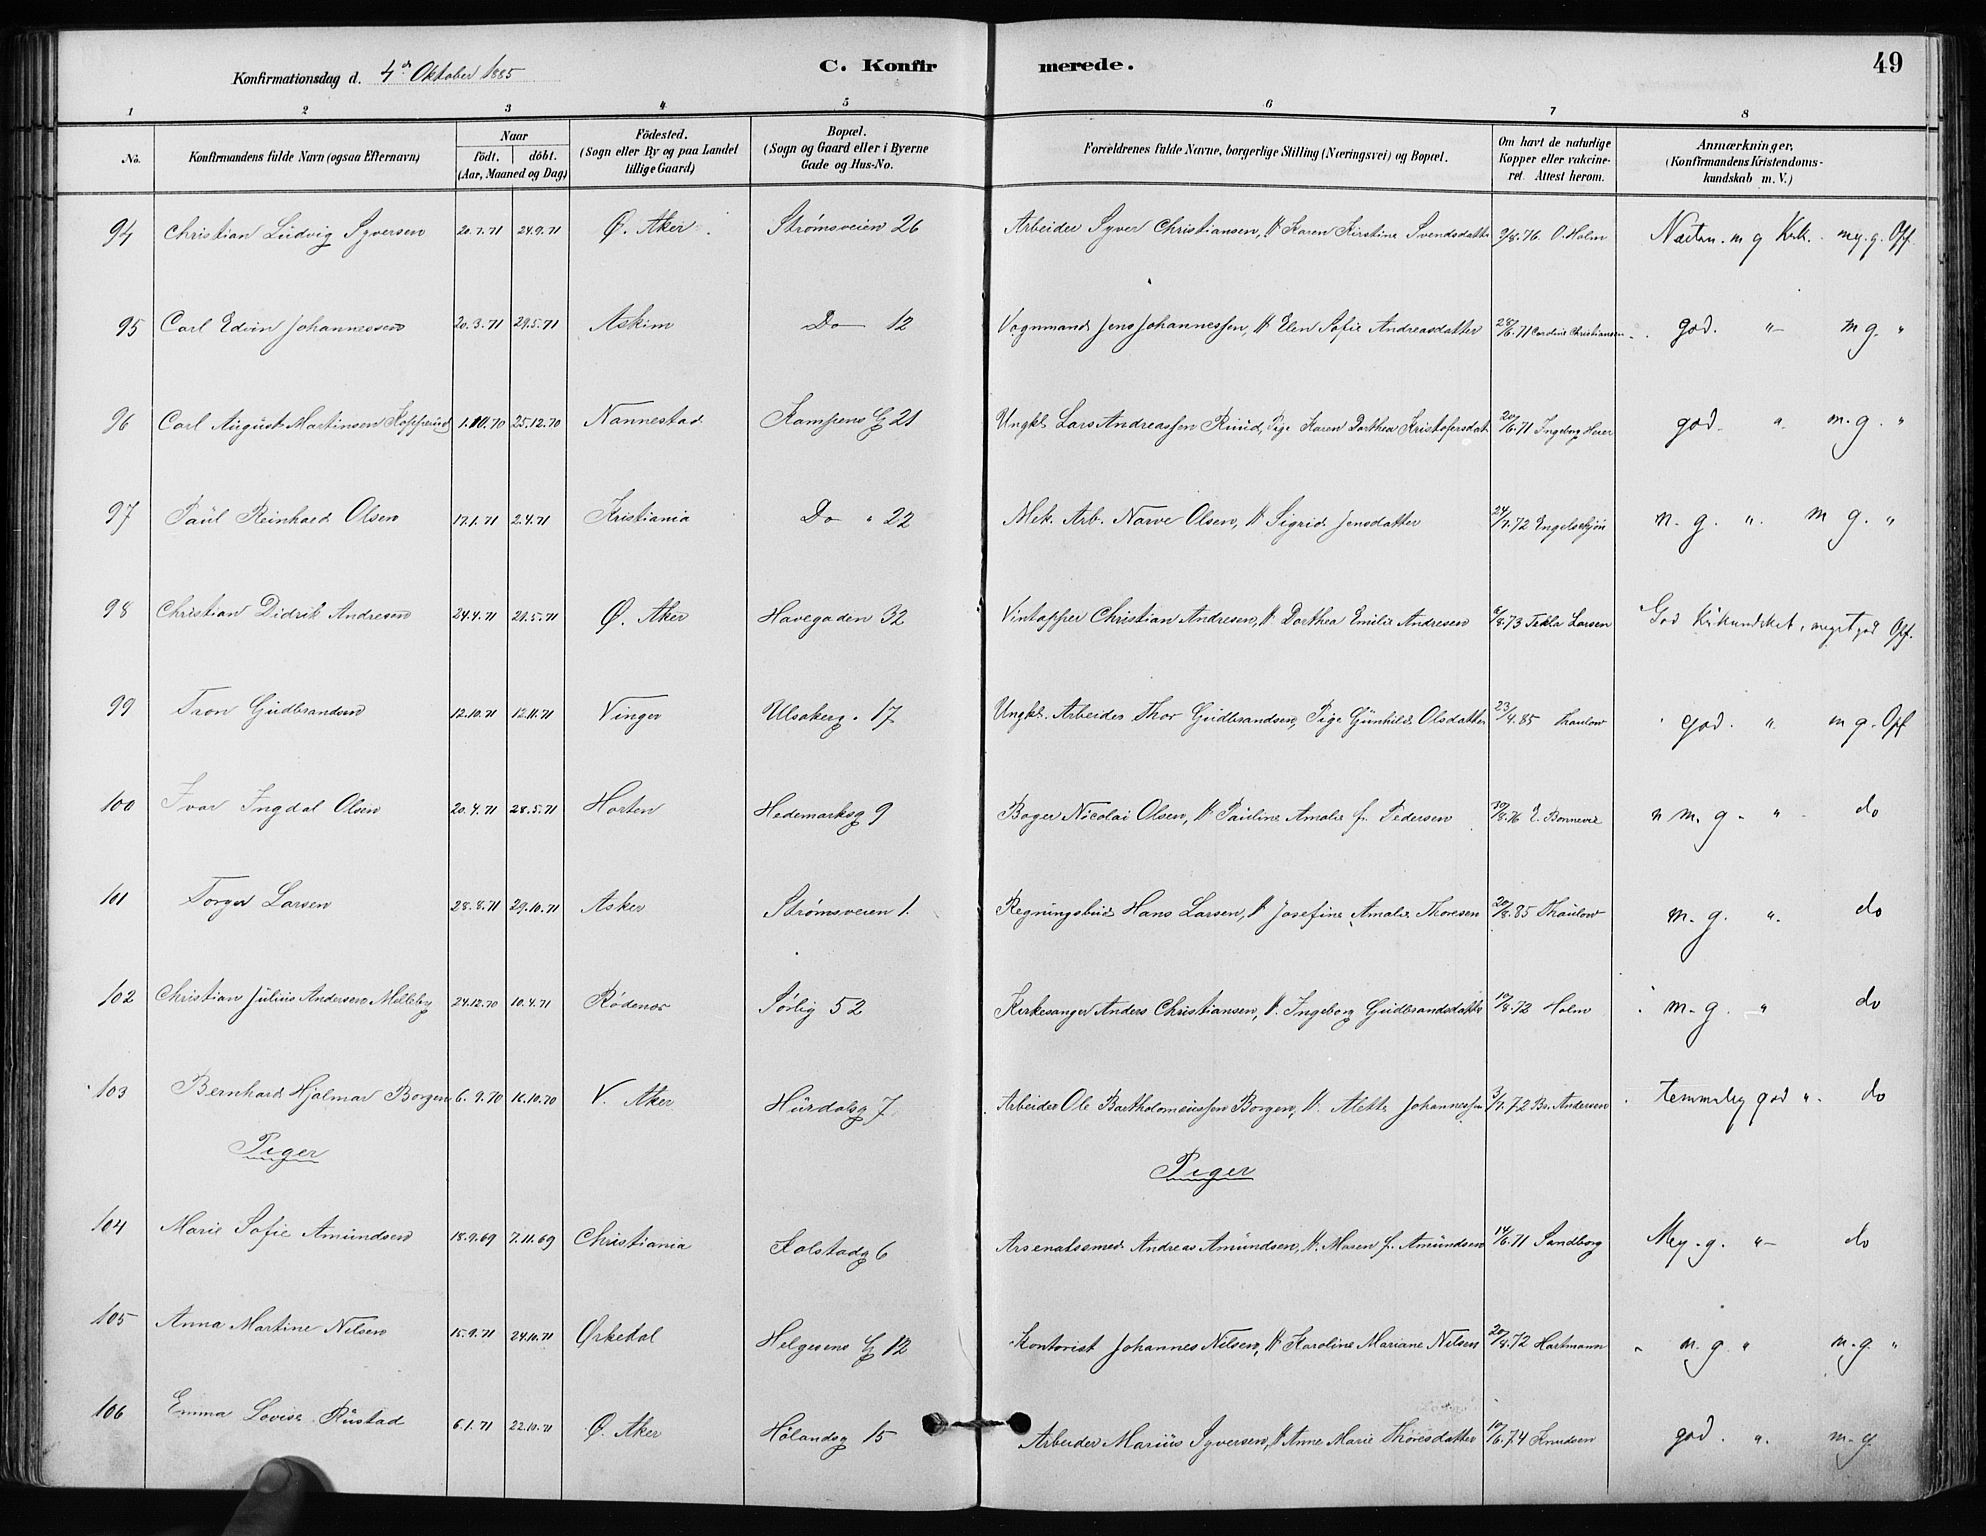 Konfirmationsdag d. 4de Oktober 1885
C. Konfirmerede.
49
1 2 3 4 5 6 7 8
No. Konfirmandens fulde Navn (ogsaa Efternavn) Naar födt. döbt. (Aar, Maaned og Dag) Födested. (Sogn eller By og paa Landet tillige Gaard) Bopæl. (Sogn og Gaard eller i Byerne Gade og Hus-No. Forældrenes fulde Navne, borgerlige Stilling (Næringsvei) og Bopæl. Om havt de naturlige Kopper eller vakcineret. Attest herom. Anmærkninger, (Konfirmandens Kristendomskundskab m. V.)
94 Christian Ludvig Syversen 20.7.71 24.9.71 Ø. Aker Strømsveien 26 Arbeider Syver Christiansen, H Karen Kirstine Svendsdatter 9/8.76 O. Holm m g Krk. meg. g. Opf.
95 Carl Edvin Johannessen 20.3.71 29.5.71 Askim Do 12 Vognmand Jens Johannessen, H Elen Sofie Andreasdatter 28/6.71 Caroline Christiansen god. " m g. "
96 Carl August Martinsen Kopperud 1.10.70 25.12.70 Nannestad Kampens G 21 Ungkl. Lars Andreassen Ruud, Pige Karen Dorthea Kristofersdat 20/6.71 Ingeborg Heier god. " m. g. "
97 Paul Reinhard Olsen 17.1.71 2.4.71 Kristiania Do " 22 Mek. Arb. Narve Olsen, H Sigrid Jensdatter 24/7.72 Engelschjøn m. g. " m g. "
98 Christian Didrik Andresen 24.4.71 21.5.71 Ø. Aker Havegaden 32 Vintapper Christian Andresen, H Dorthea Emilie Andresen 6/8.73 Tekla Larsen God Kr kundskab, meget god Opf.
99 Tron Gudbrandsen 12.10.71 12.11.71 Vinger Ulsakerg. 17. Ungkl. Arbeider Thor Gudbrandsen, Pige Gunhild Olsdatter 23/4.85 Thaulow god. " m g. Opf
100 Ivar Ingdal Olsen 20.4.71 28.5.71 Horten Hedemarksg 9 Bager Nicolai Olsen, H Pauline Amalie f. Pedersen 10/8.76 E. Bonnevie m. g. " do
101 Torger Larsen 28.8.71 29.10.71 Asker Strømsveien 1. Regningsbud Hans Larsen, H Josefine Amalie Thoresen 20/8.85 Thaulow m. g. " do
102 Christian Julius Andersen Melleby 24.12.70 10.4.71 Rödenes Sørlig 52 Kirkesanger Anders Christiansen, H. Ingeborg Gudbrandsdatter 10/8.72 Holm m. g. " do
103 Bernhard Hjalmar Borgen 6.9.70 16.10.70 V. Aker Hurdalsg 7 Arbeider Ole Bartholomeussen Borgen, H. Alette Johannessen 3/7.72 Br. Andersen temmelig god ". do
Piger
Piger
104 Marie Sofie Amundsen 18.9.69 7.11.69 Christiania Kolstadg 6 Arsenalssmed Andreas Amundsen, H. Maren f. Amundsen 14/6.71 Sandborg Meg. g. " do
105 Anna Martine Nilsen 15.9.71 24.10.71 Ørkedal Helgesens G 12 Kontorist Johannes Nilsen, H Karoline Mariane Nilsen 20/8.72 Hartmann m. g. " m. g. "
106 Emma Lovise Rustad 6.1.71 22.10.71 Ø. Aker Hölandsg 15 Arbeider Marius Syversen, H Anne Marie Thoresdatter 10/6.74 Knudsen god. " m. g